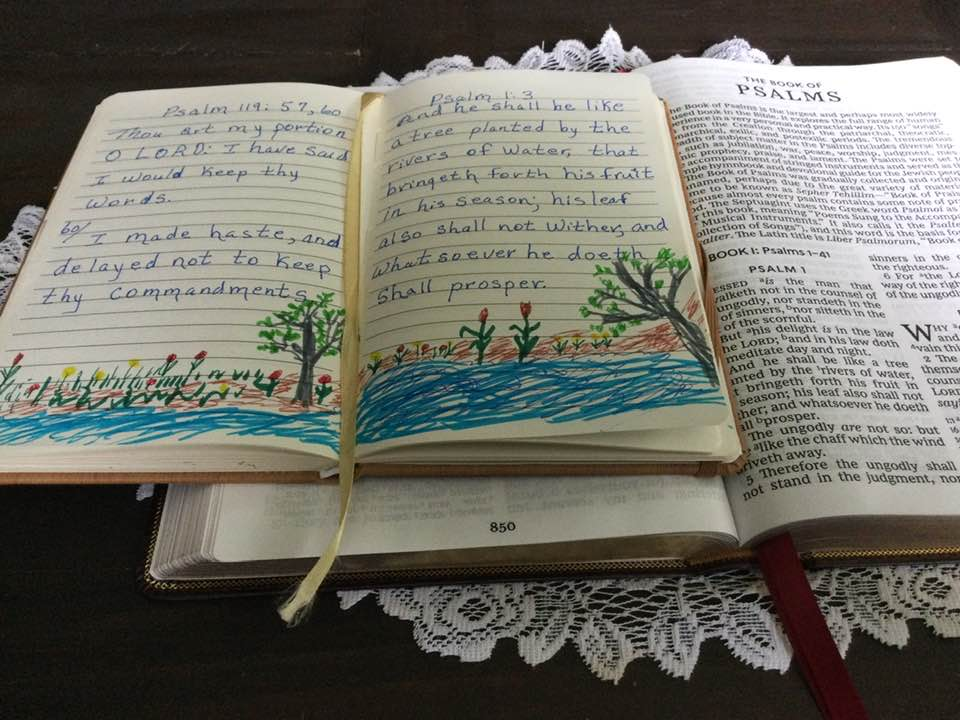 Psalm 119: 57, 60
Thou art my portion
O LORD: I have said
I would keep thy
words.
60/
I made haste, and
delayed not to keep
thy commandments
Psalm 1:3
And he shall be like
a tree planted by the
rivers of water, that
bringeth forth his fruit
in his season; his leaf
also shall not wither, and
whatsoever he doeth
shall prosper.
850
THE BOOK OF
PSALMS
he Book of Psalms is the largest and perhaps most widely
used book in the Bible. It explores the full range of human
erience in a very personal and practical way. Its 150 "songs"
from the Creation through the patriarchal, theocratic,
narchical, exilic, and postexilic periods. The
eadth of subject matter in the Psalms includes diverse top-
such as jubilation, war, peace, worship, judgment, mes-
nic prophecy, praise, and lament. The Psalms were set to
accompaniment of stringed instruments and served as the
mple hymnbook and devotional guide for the Jewish people.
he Book of Psalms was gradually collected and
named, perhaps due to the great variety of material.
me to be known as Sepher Tehillim—"Book of
cause almost every psalm contains some note of
d. The Septuagint uses the Greek word Psalmoi as
r this book, meaning "Poems Sung to the
f Musical Instruments." It also calls it the
collection of Songs"), and this word is the basis for
alter. The Latin title is Liber Psalmorum, "Book of
BOOK I: Psalms 1–41
PSALM 1
ESSED is the man that
walketh not in the counsel of
ungodly, nor standeth in the
of sinners, nor sitteth in the
of the scornful.
But his delight is in the law
he LORD; and in his law doth
meditate day and night.
And he shall be like a tree
anted by the rivers of water,
t bringeth forth his fruit in
season; his leaf also shall not
ther; and whatsoever he doeth
all prosper.
The ungodly are not so: but
like the chaff which the wind
riveth away.
5 Therefore the ungodly shall
not stand in the judgment, nor
sinners in the
the righteous.
6 For the
way of the
of the
WHY
and
vain
2 The
themse
couns
LORD
say